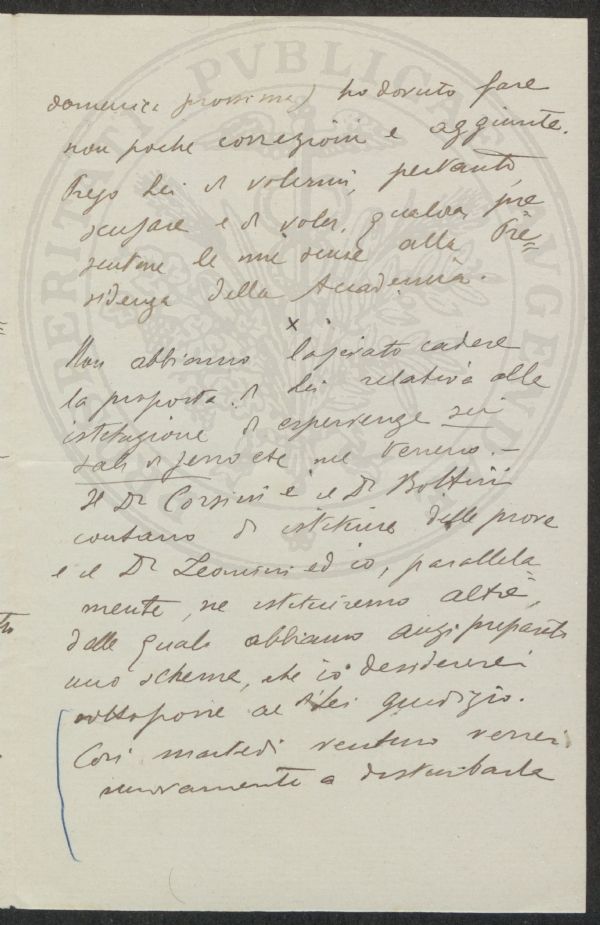 domenica prossima) ho dovuto fare
non poche correzioni e aggiunte.
Prego Lei di volermi, pertanto,
scusare e di voler, qualora, pre
sentare le mie scuse alla Pre=
sidenza della Accademia.
x
Non abbiamo lasciato cadere
la proposta di Lei relativa alla
istituzione di esperienze sui
sali di ferro etc nel terreno. –
Il Dr Corsini e il Dr Bottini
contano di istituire delle prove
e il Dr Leoncini ed io, parallela=
mente, ne istituiremo altre,
delle quali abbiamo anzi preparato
uno schema, che io desidererei
sottoporre al di Lei giudizio.
Così martedì venturo verrei
nuovamente a disturbarla
PVBLICA